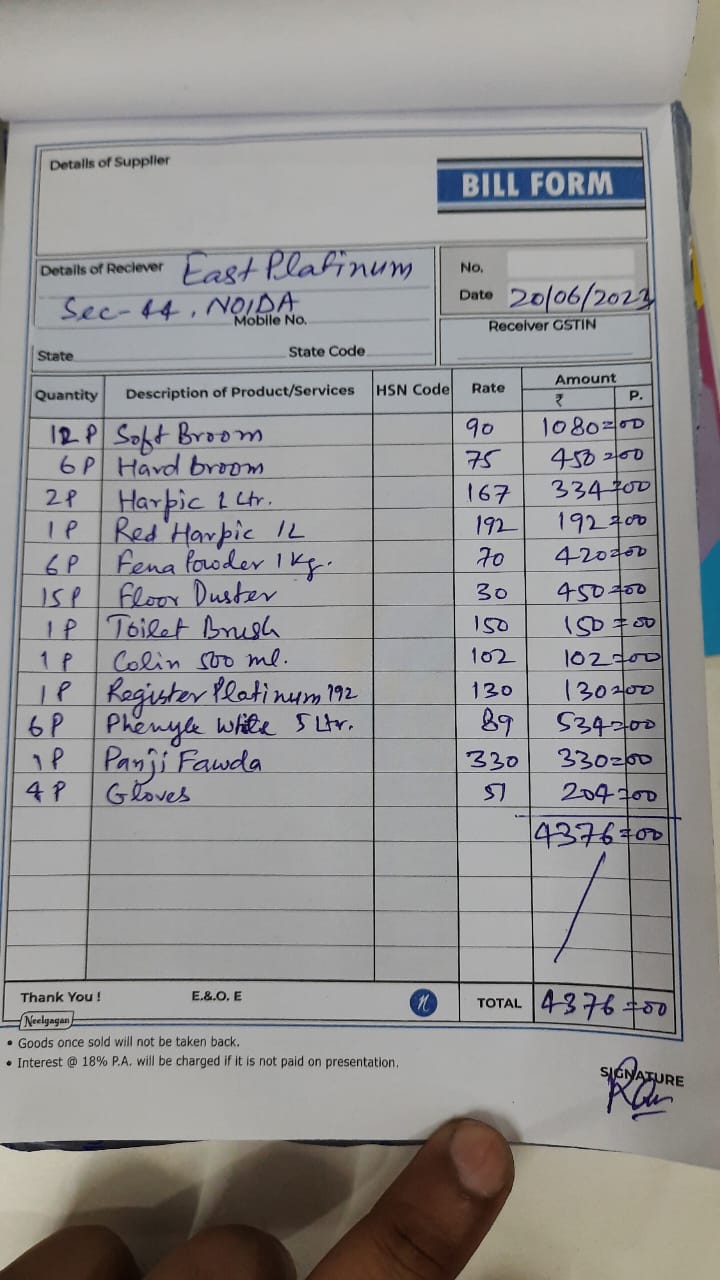 Details of Supplier
BILL FORM
Details of Reciever East Platinum
Sec-44, NOIDA
Mobile No.
State State Code
No.
Date 20/06/2023
Receiver GSTIN
Quantity Description of Product/Services HSN Code Rate Amount
₹ P.
12 P Soft Broom 90 1080=00
6P Hard broom 75 450=00
2P Harpic 1 Ltr. 167 334=00
1P Red Harpic 1L 192 192=00
6P Fena Powder 1 Kg. 70 420=00
15P Floor Duster 30 450=00
1P Toilet Brush 150 150=00
1P Colin 500 ml. 102 102=00
1P Register Platinum 192 130 130=00
6P Phenyle White 5 Ltr. 89 534=00
1P Panji Fawda 330 330=00
4P Gloves 51 204=00
4376=00
Thank You ! E.&.O. E n TOTAL 4376=00
Neelgagan
• Goods once sold will not be taken back.
• Interest @ 18% P.A. will be charged if it is not paid on presentation.
SIGNATURE